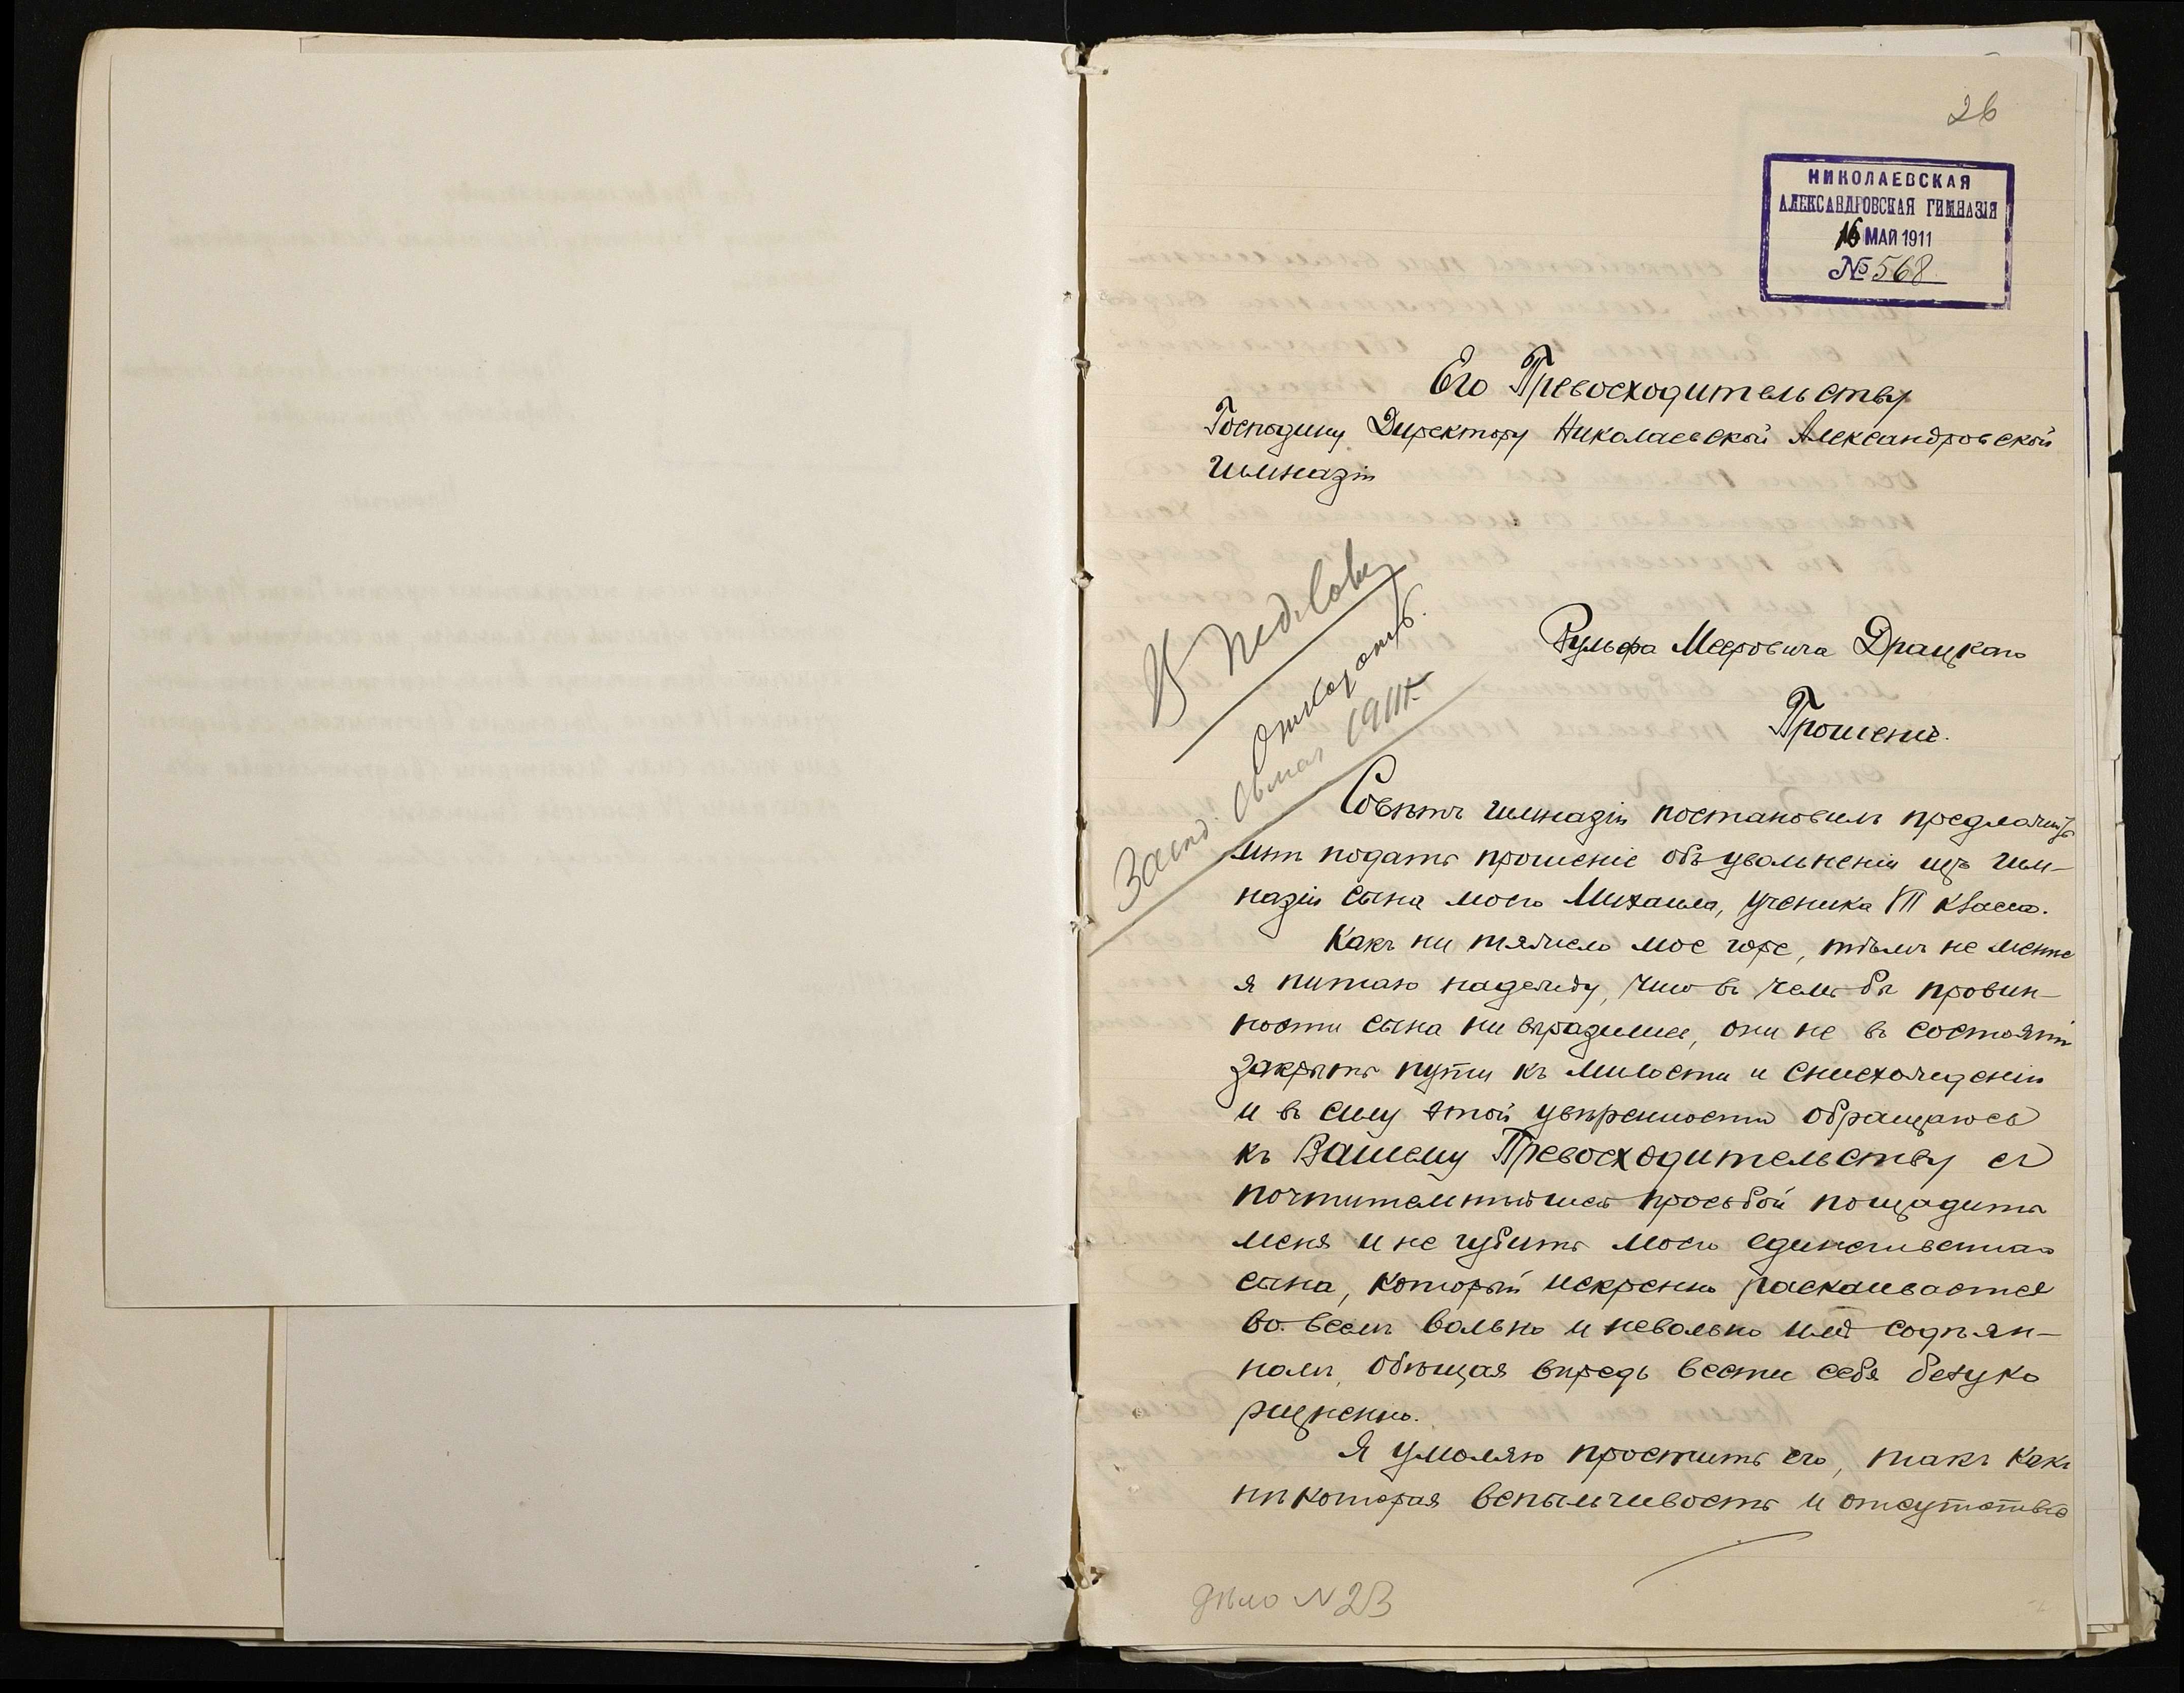 26
НИКОЛАЕВСКАЯ
АЛЕКСАНДРОВСКАЯ ГИМНАЗІЯ
16 МАЯ 1911
№ 568
Его Превосходительству
Господину Директору Николаевской Александровской
Гимназіи
В педсовет
Отказать.
Засѣд. мая 1911 г.
Рульфа Мееровича Драцкаго
Прошеніе.
Совѣтъ гимназіи постановилъ предложить
мнѣ подать прошеніе объ увольненіи изъ гим-
назіи сына моего Михаила, ученика VII класса.
Какъ ни тяжело мое горе, тѣмъ не менѣе
я питаю надежду, что въ чемъ бы провин-
ности сына ни выразились, они не въ состояніи
закрыть пути къ милости и снисхожденію
и въ силу этой увѣренности обращаюсь
къ Вашему Превосходительству съ
почтительнѣйшей просьбой пощадить
меня и не губить моего единственнаго
сына, который искренно раскаивается
во всемъ вольно и невольно имъ содѣян-
номъ, обѣщая впредь вести себя безуко
ризненно.
Я умоляю простить его, такъ какъ
нѣкоторая вспыльчивость и отсутствіе
дѣло N 23